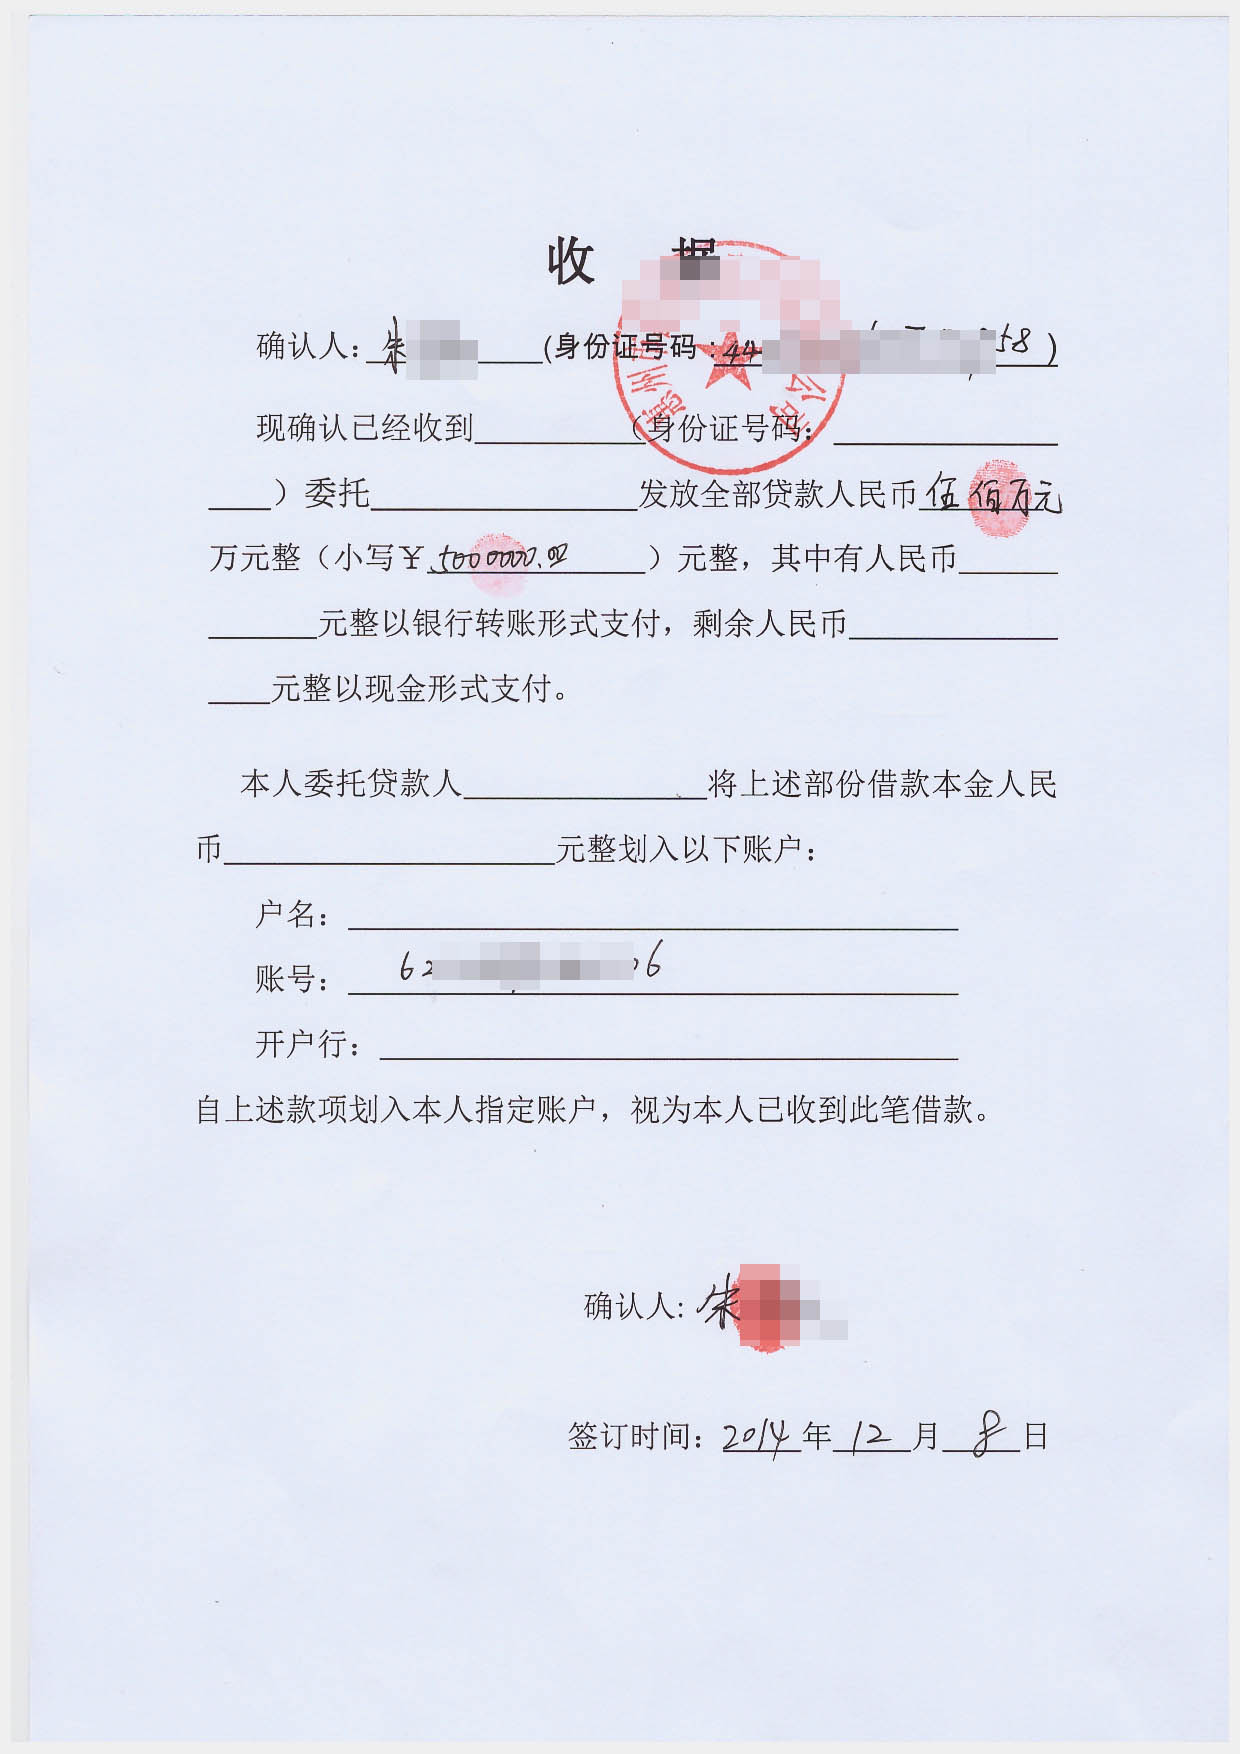 收 据
惠州市 公司
确认人：朱 (身份证号码：44 58)
现确认已经收到________（身份证号码：________
____）委托________发放全部贷款人民币伍佰万元
万元整（小写￥5000000.00）元整，其中有人民币______
______元整以银行转账形式支付，剩余人民币________
____元整以现金形式支付。
本人委托贷款人________将上述部份借款本金人民
币________元整划入以下账户：
户名：________
账号：62 06
开户行：________
自上述款项划入本人指定账户，视为本人已收到此笔借款。
确认人: 朱
签订时间：2014年12月8日